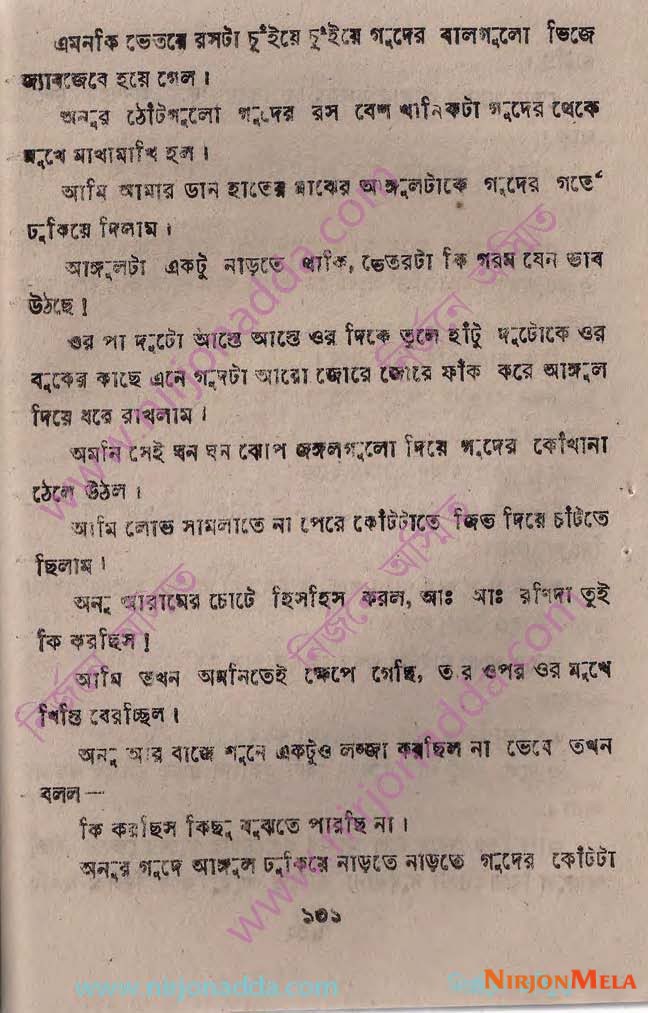 এমনকি ভেতরের রসটা চুঁইয়ে চুঁইয়ে গুদের বালগুলো ভিজে
জ্যাবজেবে হয়ে গেল।
অনুর ঠোঁটগুলো গুদের রস বেশ খানিকটা গুদের থেকে
মুখে মাখামাখি হল।
আমি আমার ডান হাতের মাঝের আঙ্গুলটাকে গুদের গর্তে
ঢুকিয়ে দিলাম।
আঙ্গুলটা একটু নাড়তে থাকি, ভেতরটা কি গরম যেন ভাব
উঠছে!
ওর পা দুটো আস্তে আস্তে ওর দিকে তুলে হাঁটু দুটোকে ওর
বুকের কাছে এনে গুদটা আরো জোরে জোরে ফাঁক করে আঙ্গুল
দিয়ে ধরে রাখলাম।
অমনি সেই ঘন ঘন ঝোপ জঙ্গলগুলো দিয়ে গুদের কোঁথানা
ঠেলে উঠল।
আমি লোভ সামলাতে না পেরে কোঁটটাতে জিভ দিয়ে চাঁটতে
ছিলাম।
অনু আরামের চোটে হিসহিস করল, আঃ আঃ রণিদা তুই
কি করছিস!
আমি তখন অমনিতেই ক্ষেপে গেছি, তার ওপর ওর মুখে
খিস্তি বেরচ্ছিল।
অনু আর বাজে শুনে একটুও লজ্জা করছিল না ভেবে তখন
বলল—
কি করছিস কিছু বুঝতে পারছি না।
অনুর গুদে আঙ্গুল ঢুকিয়ে নাড়তে নাড়তে গুদের কোঁটটা
১০১
www.nirjonadda.com
নির্জনে অস্মিত
www.nirjonadda.com
নির্জনে অস্মিত
নির্জনে অস্মিত
www.nirjonadda.com
NIRJONMELA